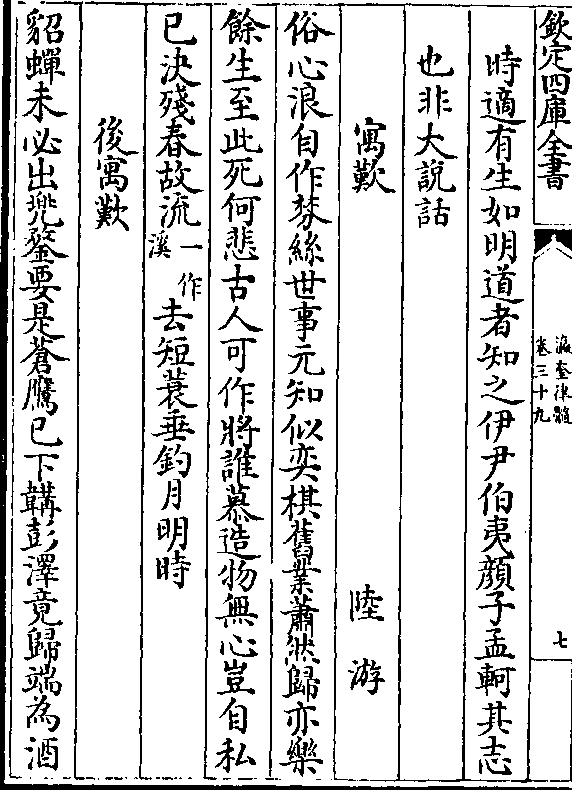 欽定四庫全書
瀛奎律髓
卷三十九
七
時適有生如明道者知之伊尹伯夷顔子孟軻其志
也非大説話
寓歎 陸游
俗心浪自作棼絲世事元知似奕棋舊業蕭然歸亦樂
餘生至此死何悲古人可作將誰慕造物無心豈自私
已決殘春故流一作溪去短蓑垂釣月明時
後寓歎
貂蟬未必出兜鍪要是蒼鷹已下韝彭澤竟歸端為酒